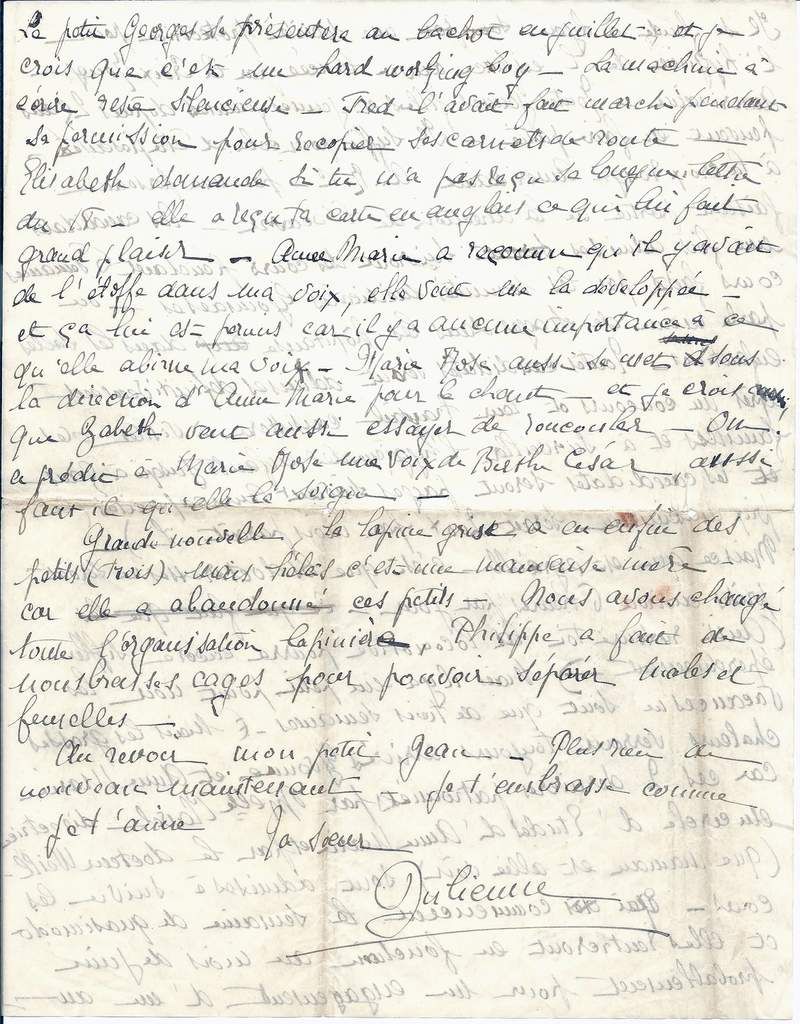 Le petit Georges se présentera au bachot en juillet - et je
crois que c'est un hard working boy - La machine à
écrire reste silencieuse - Fred l'avait fait marché pendant
sa permission pour recopier ses carnets de route -
Elisabeth demande si tu n'a pas reçu sa longue lettre
du 15 - elle a reçu ta carte en anglais ce qui lui fait
grand plaisir - Anne Marie a reconnu qu'il y avait
de l'étoffe dans ma voix, elle veut me la developpée -
et ça lui est permis car il y a aucune importance à ce
qu'elle abime ma voix - Marie Rose aussi se met sous
la direction d'Anne Marie pour le chant - et je crois aussi
que Zabeth veut aussi essayer de roucouler - On
a prédit à Marie Rose une voix de Berthe César aussi
faut il qu'elle la soigne -
Grande nouvelle la lapine grise a eu enfin des
petits (trois) mais hélas c'est une mauvaise mère
car elle a abandonné ces petits - Nous avons changé
toute l'organisation lapinière Philippe a fait de
nombreuses cages pour pouvoir séparer males et
femelles -
Au revoir mon petit Jean - Plus rien de
nouveau maintenant je t'embrasse comme
je t'aime Ta sœur
Julienne